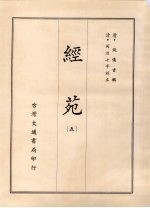 清•錢儀吉輯
清•同治七年刻本
經苑
〔五〕
台灣大通書局印行